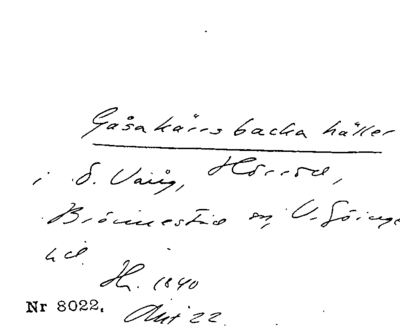 Gåsakärrs backa häller
i S. Vång, Hörröd,
Brönnestad sn, V. Göinge
hd.
Hn. 1840
Nr 8022.
22.